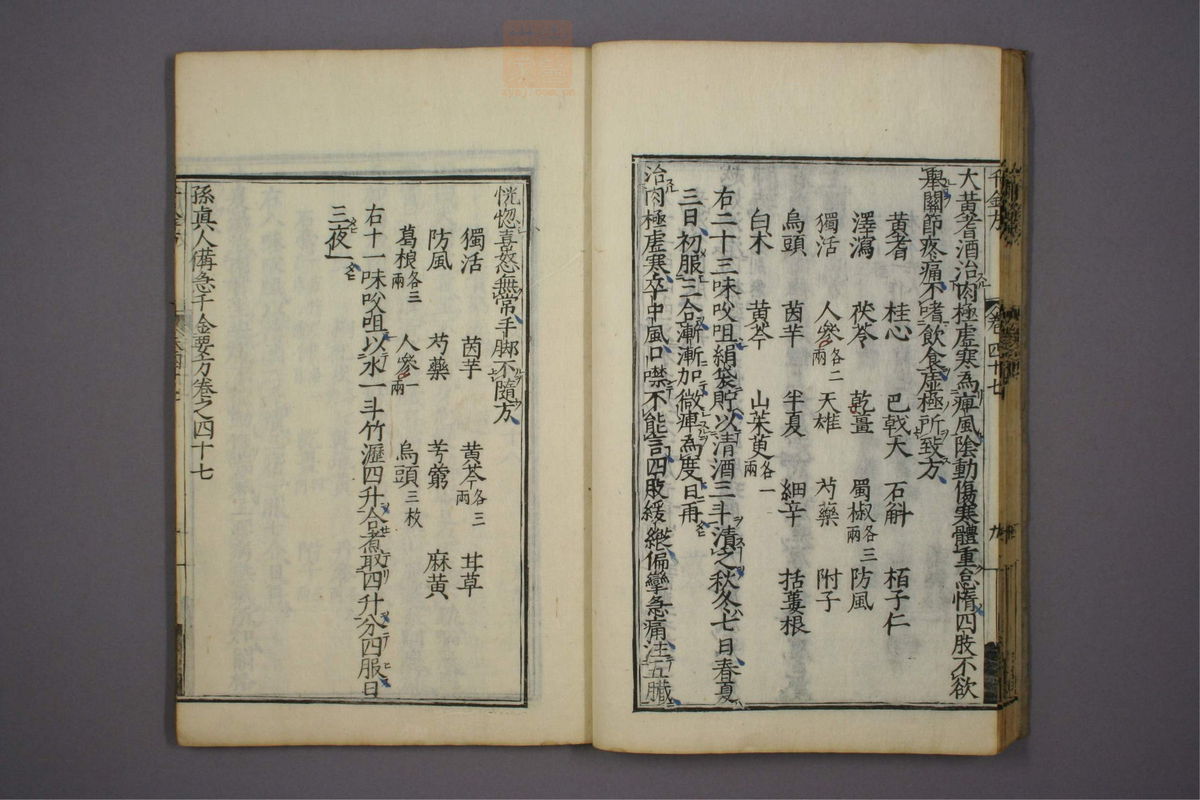 千金方 卷四十七 九
大黃耆酒治肉極虛寒為痺風陰動傷寒體重怠惰四肢不欲
舉關節疼痛不嗜飲食虛極所致方
黃耆 桂心 巴戟天 石斛 栢子仁
澤瀉 茯苓 乾薑 蜀椒各三兩 防風
獨活 人參各二兩 天雄 芍藥 附子
烏頭 茵芋 半夏 細辛 括蔞根
白木 黃芩 山茱萸各一兩
右二十三味㕮咀絹袋貯以清酒三斗漬之秋冬七日春夏
三日初服三合漸漸加微痺為度日再
治肉極虛寒卒中風口噤不能言四肢緩縱偏攣急痛注五臟
恍惚喜怒無常手脚不隨方
獨活 茵芋 黃芩各三兩 甘草
防風 芍藥 芎藭 麻黃
葛根各三兩 人參一兩 烏頭三枚
右十一味㕮咀以水一斗竹瀝四升合煮取四升分四服日
三夜一
孫真人備急千金要方卷之四十七